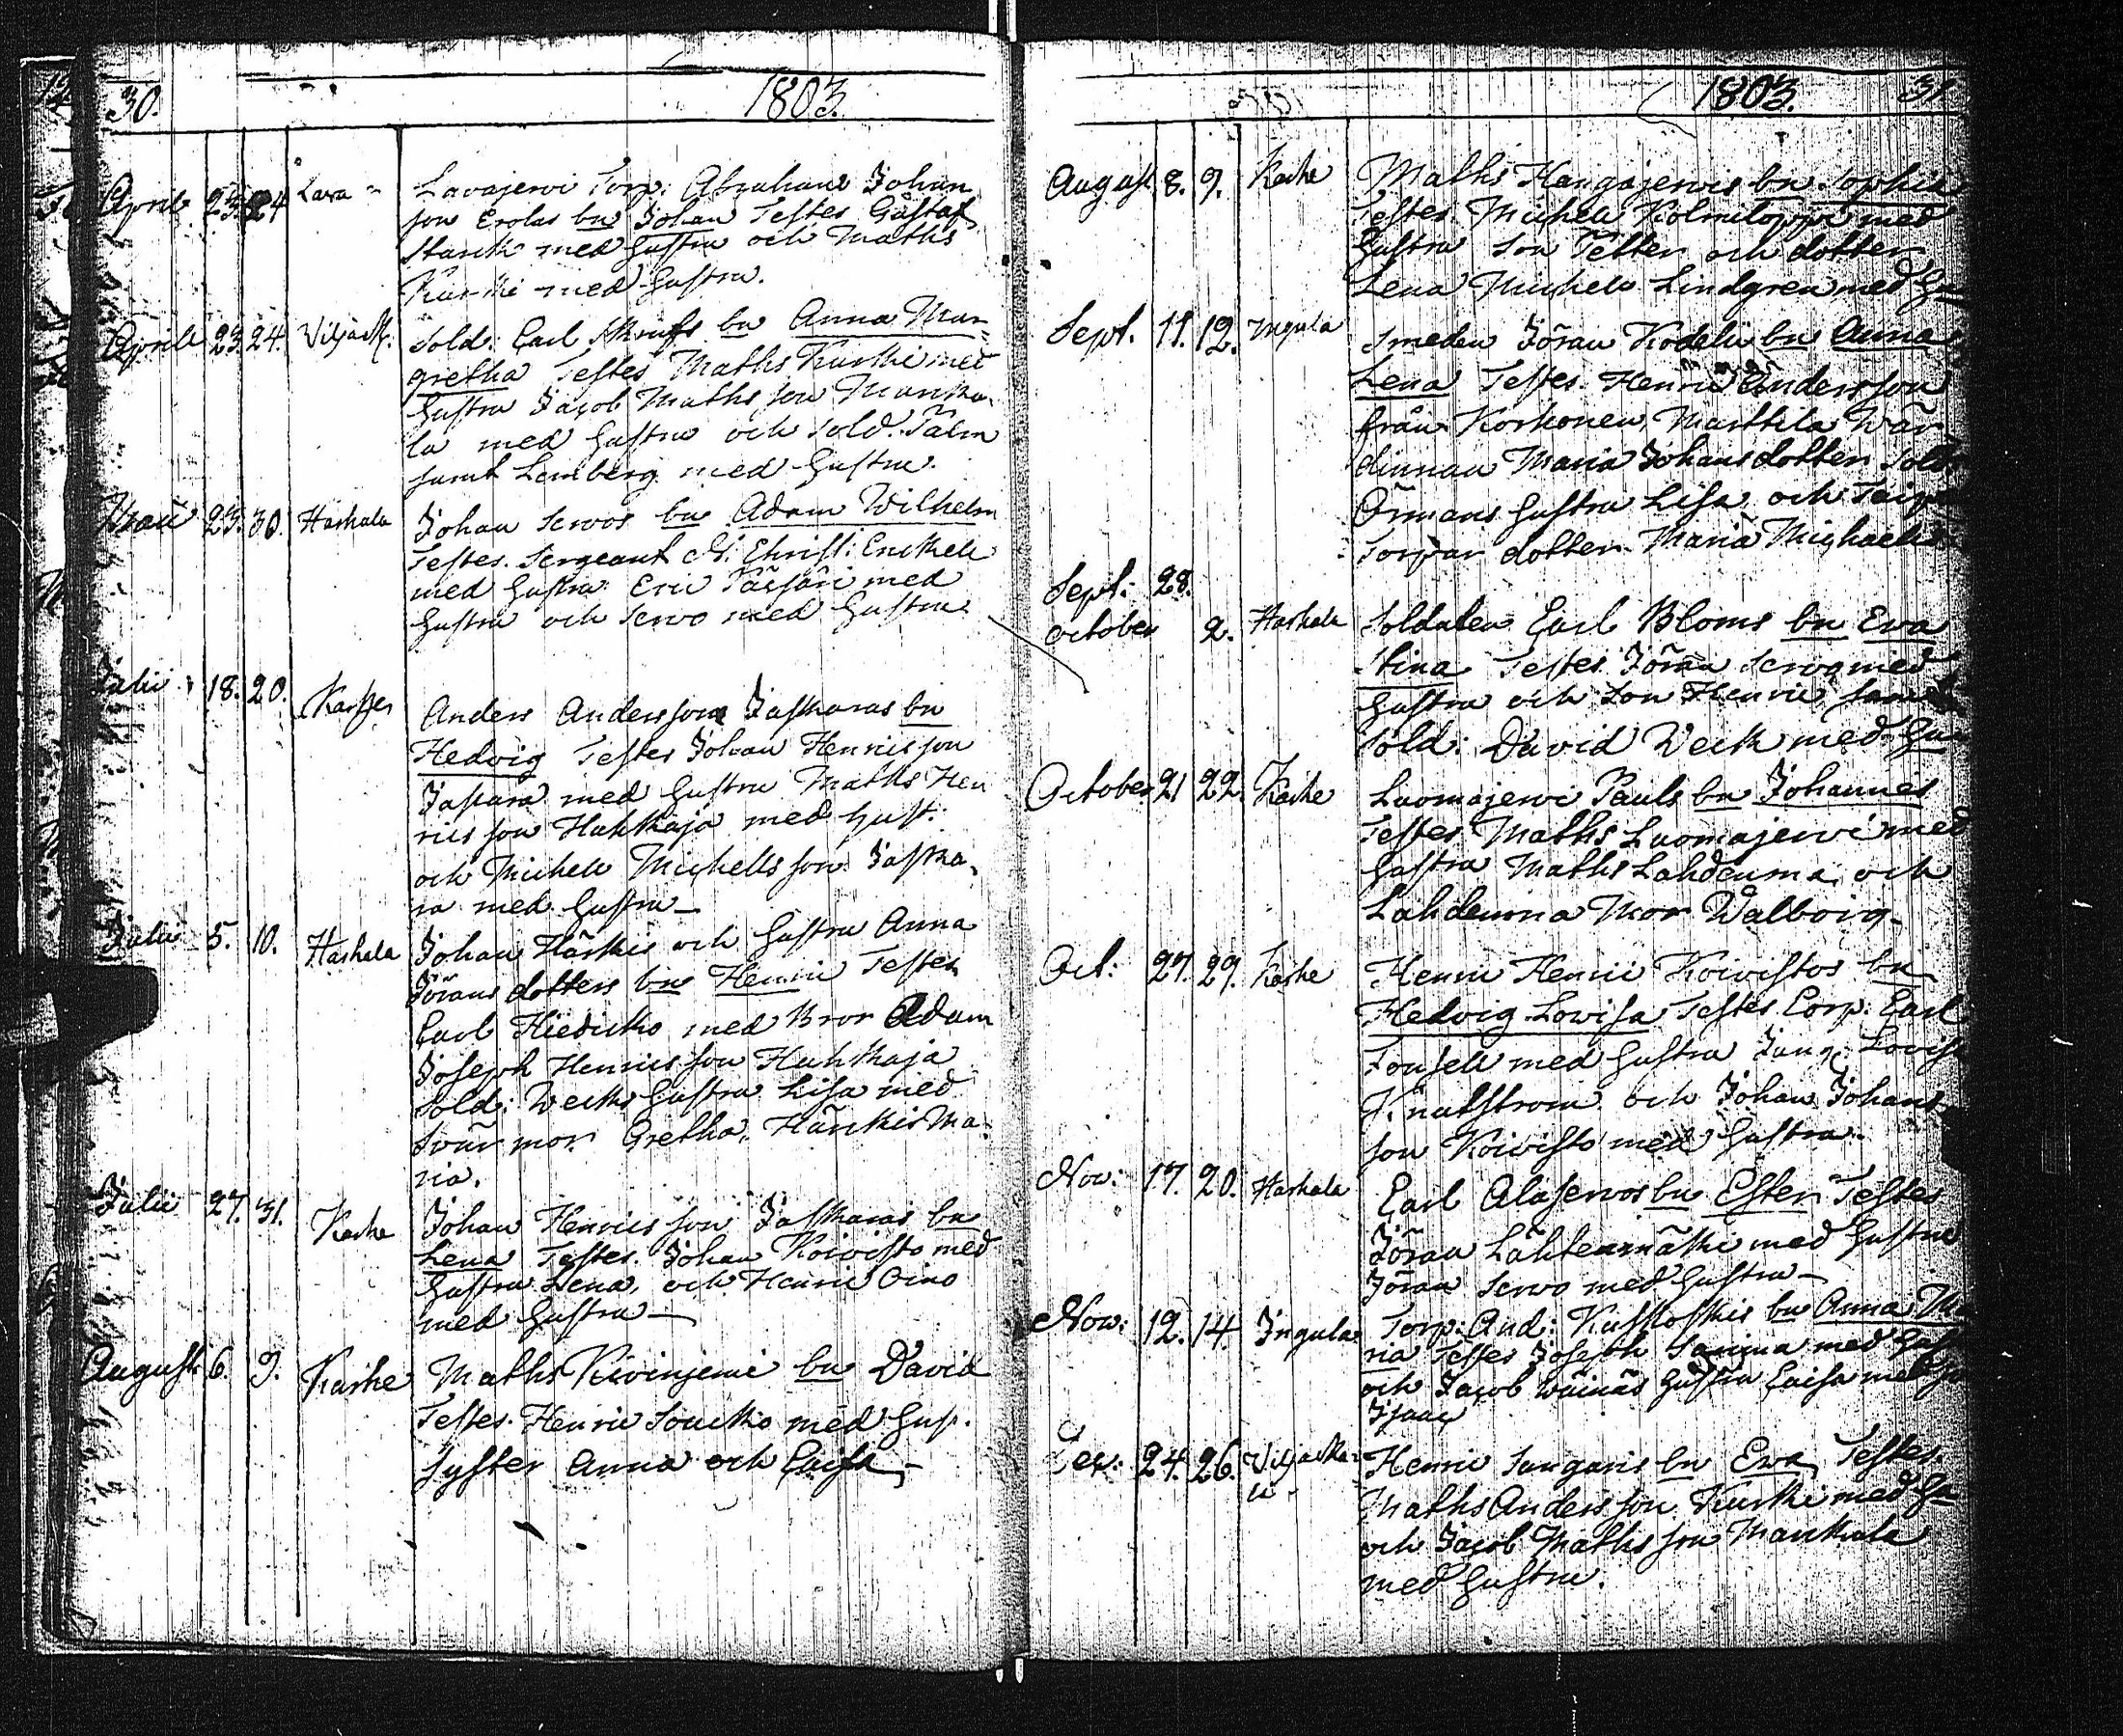 30.
1803.
April 23. 24 Lava Lavajerwi Torp: Abrahams Johan
son Erolas bn Johan Testes Gustaf
Starck med hustru och Maths
Kurki med hustru.
April 23. 24. Viljack. Sold: Carl bn Anna Mar=
gretha Testes Maths Kurki med
hustru Jacob Mathsson Manka-
la med hustru och Sold. Palm
samt Lemberg med hustru.
Maii 25. 30. Haskala Johan Servos bn Adam Wilhelm
Testes. Sergeant Christ: Enckell
med hustru Eric med
hustru och Servo med hustru
Julii 18. 20. Anders Anderssons Jaskaras bn
Hedvig Testes Johan Henricsson
Jaskara med hustru Maths Hen
ricsson Huhkaja med hust:
och Michell Michellsson Jaska-
ra med hustru—
Julii 5. 10. Haskala Johan Härkis och hustru Anna
Jörans dotters bn Henric Testes
Carl Hiedicko med Bror Adam
Joseph Henricsson Huhkaja
Sold: Wecks hustru Lisa med
Svärmor Gretha, Härkis Ma-
ria.
Julii 27. 31. Keske Johan Henricsson Jaskaras bn
Lena Testes. Johan Koivisto med
hustru Lena, och Henric Oino
med hustru—
August 6. 9. Kaske Maths Kivinjemi bn David
Testes. Henric Soucko med hus.
Syster Anna och Caisa,—
1803. 31
August 8. 9. Keske Maths Haugajervis bn Sophia
Testes Michell Kolmiloppi med
hustru Son Petter och dotter
Lena Michels Lindgren med hu
Sept. 11. 12. Ingula Smeden Jöran Kodelis bn Anna
Lena Testes. Henric Andersson
från Korkonen, Marttila Wär-
dinnan Maria Johansdotter Sold.
Örmans hustru Lisa och
Torpar dotter Maria Michaels
Sept: 28.
October 2. Haskala Soldaten Carl Bloms bn Ewa
Stina Testes Jöran Servo med
hustru och Son Henric samt
Sold: David Weck med hu
October 21 22. Keske Luomajerwi Pauls bn Johannes
Testes Maths Luomajerwi med
hustru Maths Lahdenma och
Lahdenma Mor Walborg-
Oct: 27. 29. Keske Henric Henric Koivistos bn
Hedvig Lovisa Testes. Corp: Carl
Fonsell med hustru Jung: Lovisa
Knutström och Johan Johans-
son Koivisto med hustru.
Nov: 17. 20. Haskala Carl Alaservos bn Ester Testes
Jöran Lähtenmäki med hustru
Jöran Servo med hustru—
Nov: 12. 14. Ingula Torp: And: bn Anna Ma
ria Testes Joseph med hus
och Jacob Wäinäs hustru Caisa med
Isaac
Dec: 24. 26. Viljacka-
la - Henric Sangaris bn Ewa Testes.
Maths Andersson Kurki med hu
och Jacob Mathsson Mankala
med hustru.